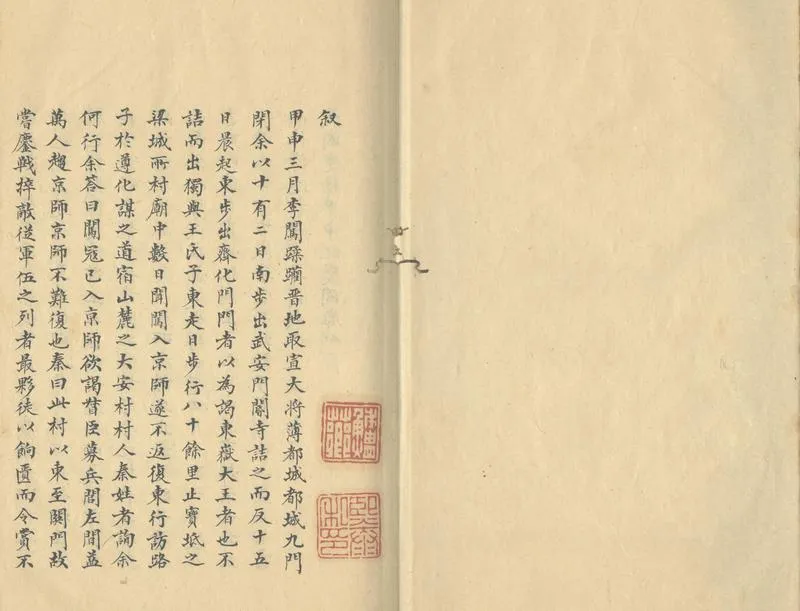 叙
甲申三月李闖蹂躪晋地取宣大將薄都城都城九門
閉余以十有二日南步出武安門閽寺詰之而反十五
日晨起東步出齊化門門者以為謁東嶽大王者也不
詰而出獨與王氏子東走日步行八十餘里止寶坻之
梁城所村廟中數日聞闖入京師遂不返復東行訪路
子於遵化謀之道宿山麓之大安村村人秦姓者詢余
何行余答曰闖冦已入京師欲謁督臣募兵閭左間益
萬人趨京師京師不難復也秦曰此村以東至関門故
嘗鏖戰捽敵従軍伍之列者最夥徒以餉匱而令賞不